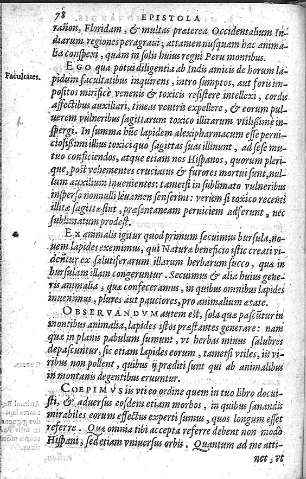 78 EPISTOLA
rañon, Floridam, & multas praeterea Occidentalium In-
diarum regiones peragraui; attamen nusquam hac anima-
lia conspexi, quàm in solis huius regni Peru montibus.
Facultates.
EGO qua potui diligentia ab Indis amicis de horum la-
pidum facultatibus inquirens, intro sumptos, aut foris im-
positos mirificè venenis & toxicis resistere intellexi, cordis
affectibus auxiliari, tineas ventris expellere, & eorum pul-
uerem vulneribus sagittarum toxico illitarum vtilissimè in-
spergi. In summa hūc lapidem alexipharmacum esse perni-
ciosissimi illius toxici quo sagittas suas illinunt, ad sese mu-
tuo conficiendos, atque etiam nos Hispanos, quorum pleri-
que, post vehementes cruciatus & furores mortui sunt, nul-
lum auxilium inuenientes: tametsi in sublimato vulneribus
insperso nonnulli leuamen senserint: verùm si toxico recenti
illitae sagittae sint, praesentaneam perniciem adferunt, nec
sublimatum prodest.
Ex animalis igitur quod primum secuimus bursula, no-
uem lapides exemimus, qui Naturae beneficio istic creati vi-
dentur ex salutiferarum illarum herbarum succo, quae in
bursulam illam congeruntur. Secuimus & alia huius gene-
ris animalia, quae confeceramus, in quibus omnibus lapides
inuenimus, plures aut pauciores, pro animalium aetate.
OBSERVANDVM autem est, sola quae pascūtur in
montibus animalia, lapides istos praestantes generare: nam
quae in planis pabulum sumunt, vt herbas minus salubres
depascuntur, sic etiam lapides eorum, tametsi vtiles, iis vi-
ribus non pollent, quibus ij praediti sunt qui ab animalibus
in montanis degentibus eruuntur.
COEPIMVS iis vti eo ordine quem in tuo libro docui-
sti, & aduersus eosdem etiam morbos, in quibus sanandis
mirabiles eorum effectus experti sumus, quos longum esset
referre. Quae omnia tibi accepta referre debent non modo
Hispani, sed etiam vniuersus orbis. Quantum ad me atti-
net, vt